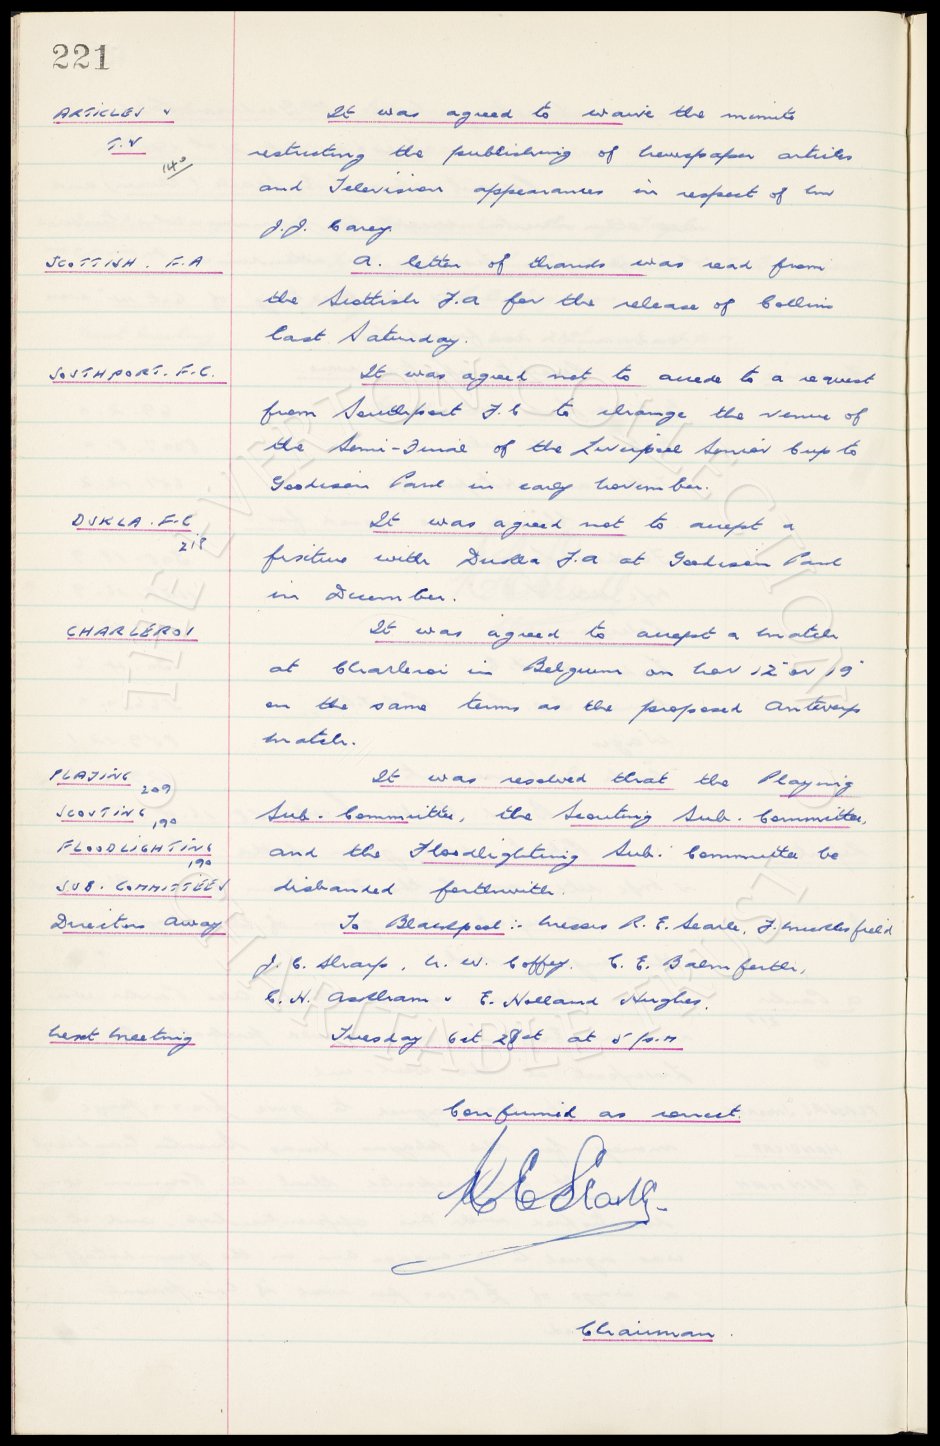 221
ARTICLES &
T.V
140
It was agreed to waive the minute
restricting the publishing of Newspaper articles
and Television appearances in respect of Mr
J.J. Carey
SCOTTISH. F.A
A. letter of thanks was read from
the Scottish F.A for the release of Collins
last Saturday.
SOUTHPORT. F.C.
It was agreed not to accede to a request
from Southport F.C to change the venue of
the Semi-Final of the Liverpool Senior Cup to
Goodison Park in early November.
DUKLA. F.C
218
It was agreed not to accept a
fixture with Dukla F.A at Goodison Park
in December.
CHARLEROI
It was agreed to accept a match
at Charleroi in Belgium on Nov 12" or 19"
on the same terms as the proposed Antwerp
match.
PLAYING 209
SCOUTING 190
FLOODLIGHTING
190
SUB. COMMITTEES
It was resolved that the Playing
Sub. Committee, the Scouting Sub. Committee,
and the Floodlighting Sub. Committee be
disbanded forthwith.
Directors away
To Blackpool :- Messrs R. E. Searle, F. Micklesfield
J. C. Sharp, N. W. Coffey. C. E. Balmforth,
C. H. Askham & E. Holland Hughes.
Next Meeting
Tuesday Oct 28st at 5 p.m
Confirmed as correct.
Chairman.
THE EVERTON COLLECTION
CHARITABLE TRUST